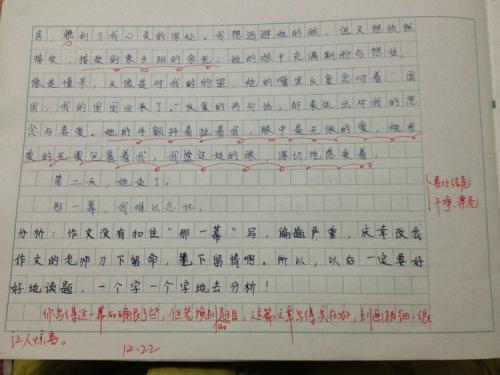 房，照到了我心灵的深处。我想逃避她的眼，但又想欣然
接受，接受到来夕阳的余光。她的眼中充满期盼与想往，
像是憧憬，又像是对我的盼望，她的嘴里反复念叨着“囡
囡，我的囡囡回来了。”反复的两句话，却表达出对我的思
念与喜爱。她的手颤抖着拉着我，眼中是无限的爱，她用
爱的光圈包裹着我，我接过她的眼，深切地感受着。
第二天，她走了。
那一幕，我难以忘怀。
分析：作文没有扣住“那一幕”写，偏题严重，庆幸改我
作文的老师刀下留命，笔下留情啊。所以，以后一定要好
好地读题，一个字一个字地去分析！
喜的结尾
干净漂亮
你写得这一幕的确好了些，但若按扣题目，这篇文章写得实在好，刻画极细，很
让人惊喜。
12.22